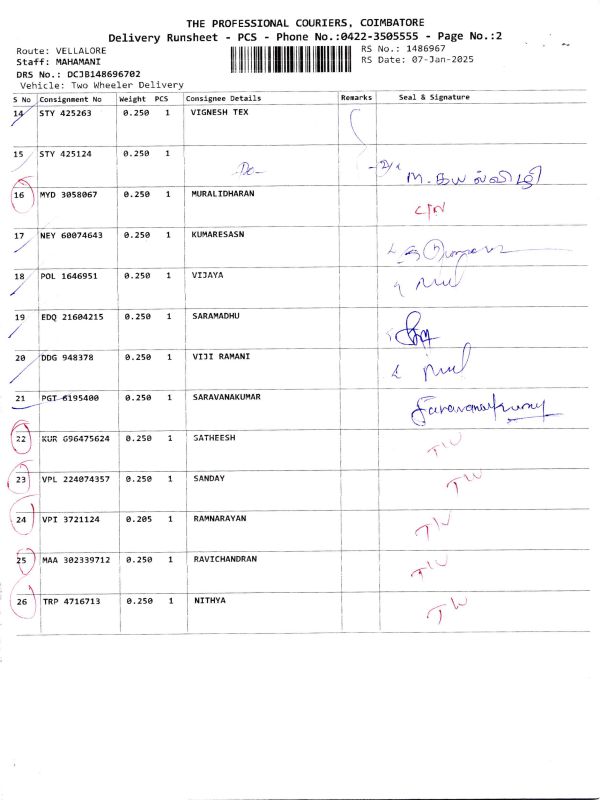 THE PROFESSIONAL COURIERS, COIMBATORE
Delivery Runsheet - PCS - Phone No.:0422-3505555 - Page No.:2
Route: VELLALORE
RS No.: 1486967
Staff: MAHAMANI
RS Date: 07-Jan-2025
DRS No.: DCJB148696702
Vehicle: Two Wheeler Delivery
S No Consignment No Weight PCS Consignee Details Remarks Seal & Signature
14 STY 425263 0.250 1 VIGNESH TEX
15 STY 425124 0.250 1 -Do-
M. கயல்விழி
16 MYD 3058067 0.250 1 MURALIDHARAN
17 NEY 60074643 0.250 1 KUMARESASN
18 POL 1646951 0.250 1 VIJAYA
19 EDQ 21604215 0.250 1 SARAMADHU
20 DDG 948378 0.250 1 VIJI RAMANI
21 PGT 6195400 0.250 1 SARAVANAKUMAR Saravanakumar
22 KUR G96475624 0.250 1 SATHEESH T/W
23 VPL 224074357 0.250 1 SANDAY T/W
24 VPI 3721124 0.205 1 RAMNARAYAN T/W
25 MAA 302339712 0.250 1 RAVICHANDRAN T/W
26 TRP 4716713 0.250 1 NITHYA T/W